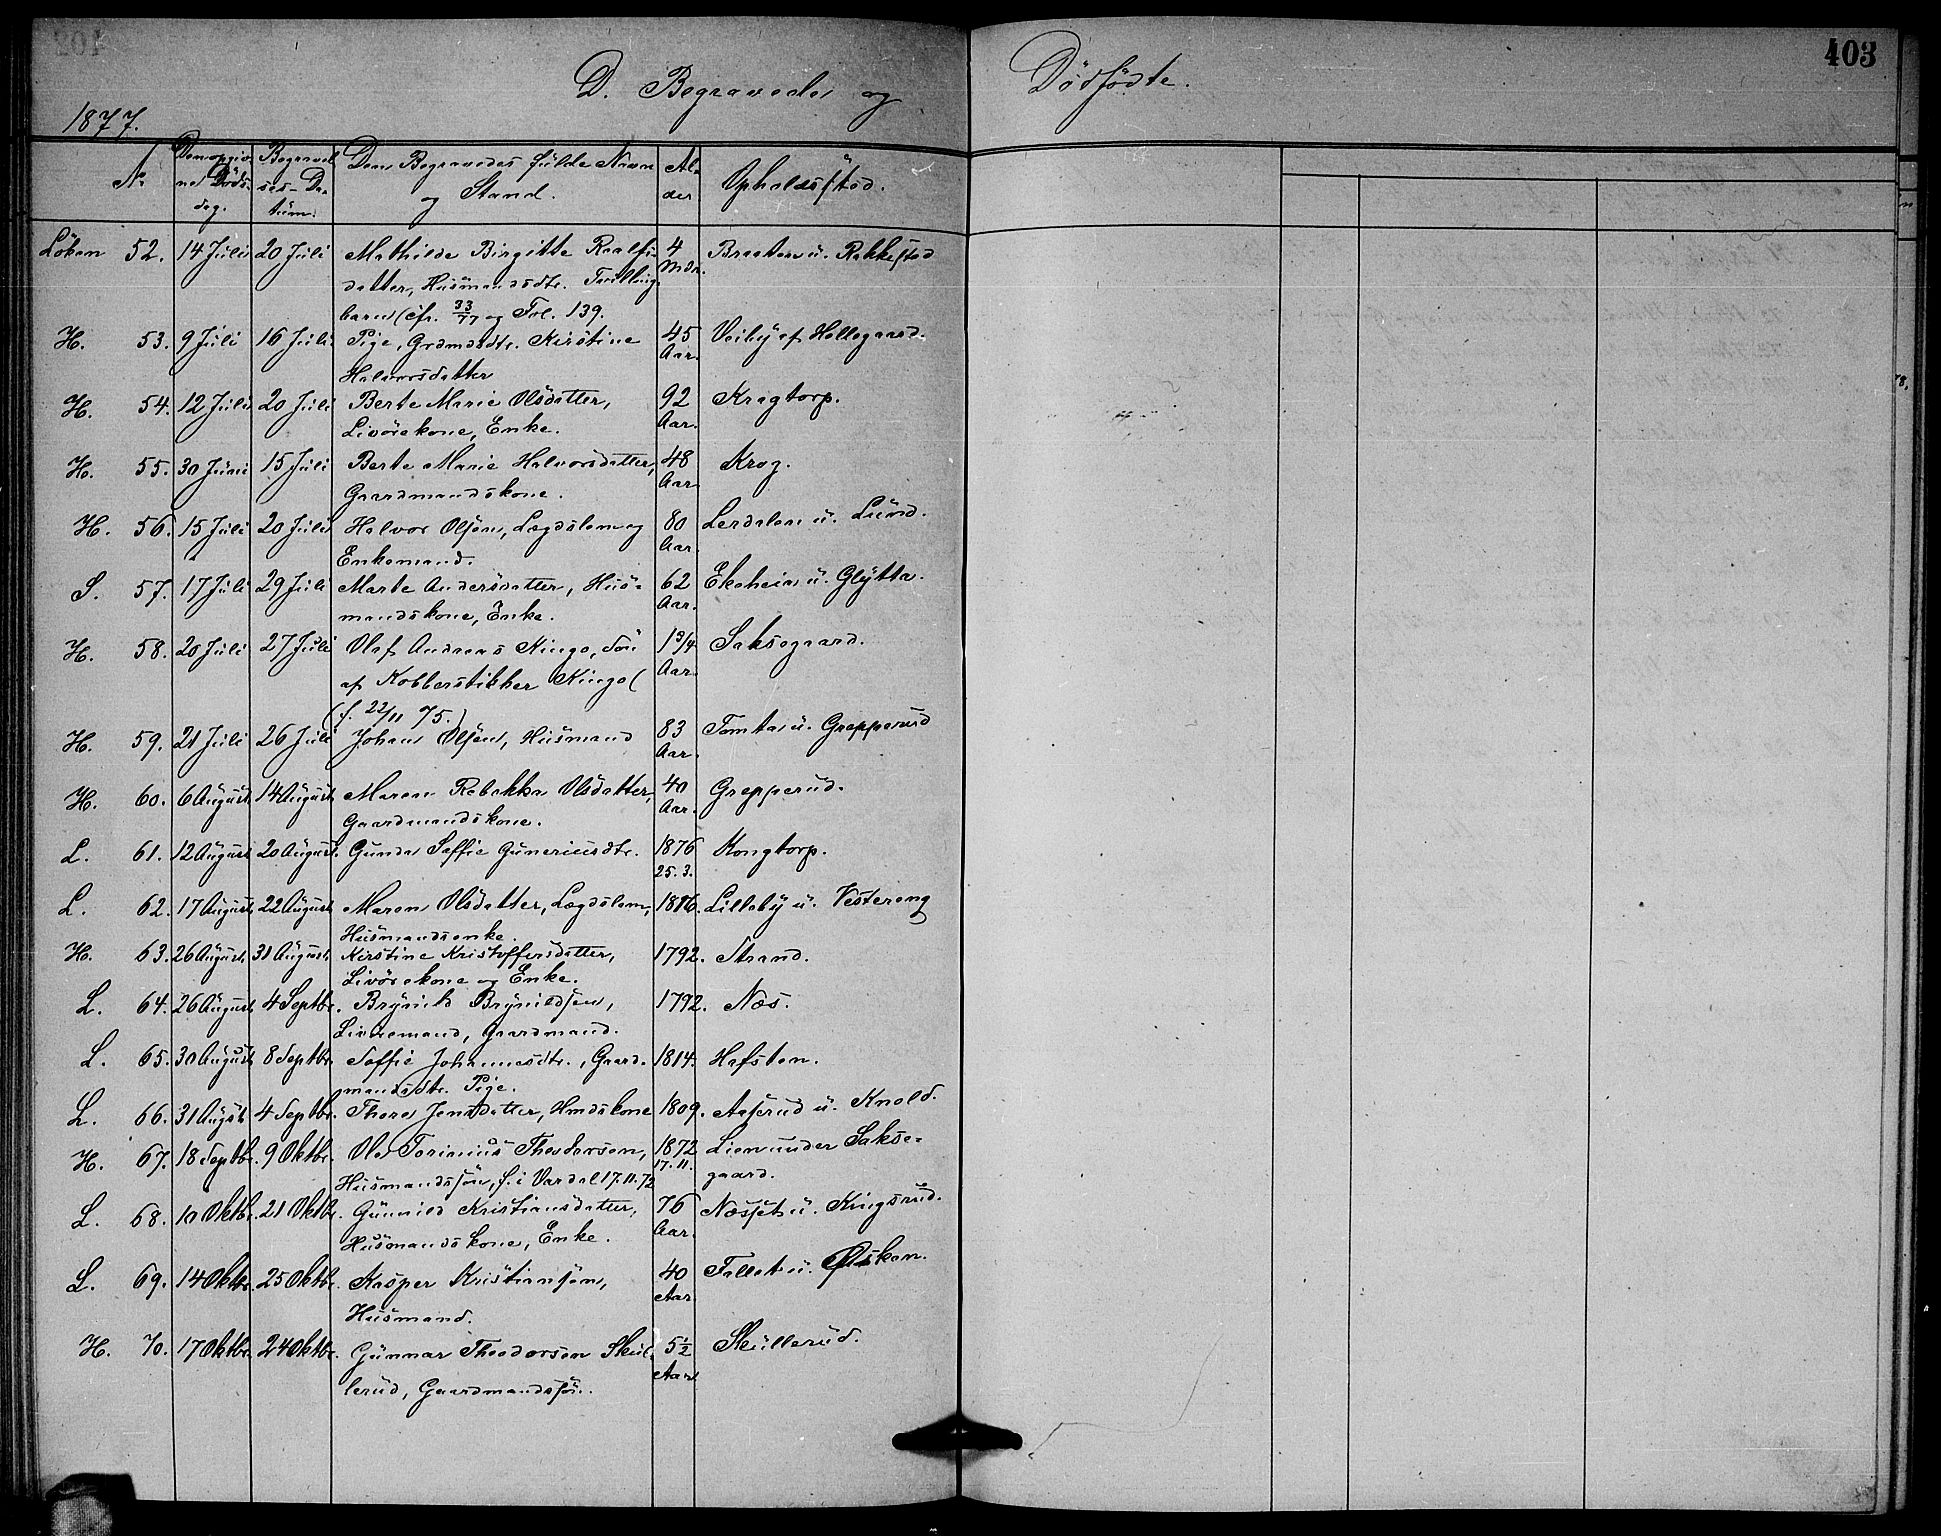 403
D. Begravede og Dödfödte.
1877.
No
Den opgivne Döds-dag.
Begravelses-Datum.
Den Begravedes fulde Navn og Stand.
Alder
Opholdssted.
Löken 52. 14 Juli 20 Juli Mathilde Birgitte 4 Braaten u. Rakkestad
datter, Husmandsdtr. Tvilling- Mdr.
barn (cfr. 33/77 og Fol. 139.
H. 53. 9 Juli 16 Juli Pige, Grdmdsdtr. Kirstine 45 Veiby af Hellegaard.
Halvorsdatter Aar.
H. 54. 12 Juli 20 Juli Berte Marie Olsdatter, 92 Kragtorp.
Livörekone, Enke. Aar.
H. 55. 30 Juni 15 Juli Berte Marie Halvorsdatter, 48 Krog.
Gaardmandskone. Aar.
H. 56. 15 Juli 20 Juli Halvor Olsen, Lægdslem og 80 Lerdalen u. Lund.
Enkemand. Aar.
S. 57. 17 Juli 29 Juli Marte Andersdatter, Hus- 62 Ekeheien u. Glytta.
mandskone, Enke. Aar.
H. 58. 20 Juli 27 Juli Olaf Andreas Kingo, Sön 1 3/4 Saksegaard.
af Kobberstikker Kingo ( Aar.
(f. 22/11 75.)
H. 59. 21 Juli 26 Juli Johan Olsen, Husmand 83 Tomta u. Grepperud
Aar.
H. 60. 6 August 14 August Maren Rebekka Olsdatter, 40 Grepperud.
Gaardmandskone. Aar.
L. 61. 12 August 20 August. Gunda Soffie Guneriusdtr. 1876 Kongtorp.
25. 3.
L. 62. 17 August 22 August Maren Olsdatter, Lægdslem, 1816. Lilleby u. Vestereng
Husmandsenke.
H. 63. 26 August. 31 August Kirstine Kristoffersdatter, 1792. Strand.
Livörekone og Enke.
L. 64. 26 August 4 Septbr. Brynild Brynildsen, 1792. Næs.
Livöremand, Gaardmand.
L. 65. 30 August 8 Septbr. Soffie Johannesdtr., Gaard- 1814. Hafsten.
mandsdtr. Pige.
L. 66. 31 Augst 4 Septbr. Thore Jensdatter, Hmdskone 1809. Aaserud u. Knold.
H. 67. 18 Septbr. 9 Oktbr. Ole Torinius Theodorsen, 1872 Lien under Sakse-
Husmandssön, f. i Vardal 17.11.72 17.11. gaard.
L. 68. 10 Oktbr. 21 Oktbr. Gunnild Kristiansdatter, 76 Næsset u. Kingsrud.
Husmandskone, Enke. Aar.
L. 69. 14 Oktbr. 25 Oktbr. Kasper Kristiansen, 40 Fallet u. Öisken.
Husmand. Aar.
H. 70. 17 Oktbr. 24 Oktbr. Gunnar Theodorsen Skul- 5 1/2 Skullerud.
lerud, Gaardmandssön. Aar